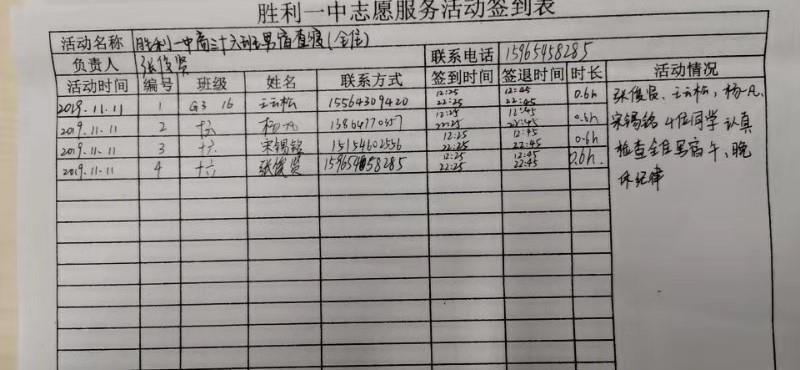 胜利一中志愿服务活动签到表
活动名称 胜利一中高三十六班男宿查寝(全住)
负责人 张俊贤 联系电话 15965458285
活动时间 编号 班级 姓名 联系方式 签到时间 签退时间 时长 活动情况
2019.11.11 1 G3 16 王云松 15564309420 12:25 22:25 12:45 22:45 0.6h
2019.11.11 2 十六 杨一凡 12:25 22:25 12:45 22:45 0.6h
2019.11.11 3 十六 宋锡铭 15154602556 12:25 22:25 12:45 22:45 0.6h
2019.11.11 4 十六 张俊贤 15965458285 12:25 22:25 12:45 22:45 0.6h.
张俊贤、王云松、杨一凡、
宋锡铭 4位同学认真
检查全住男宿午、晚
休纪律